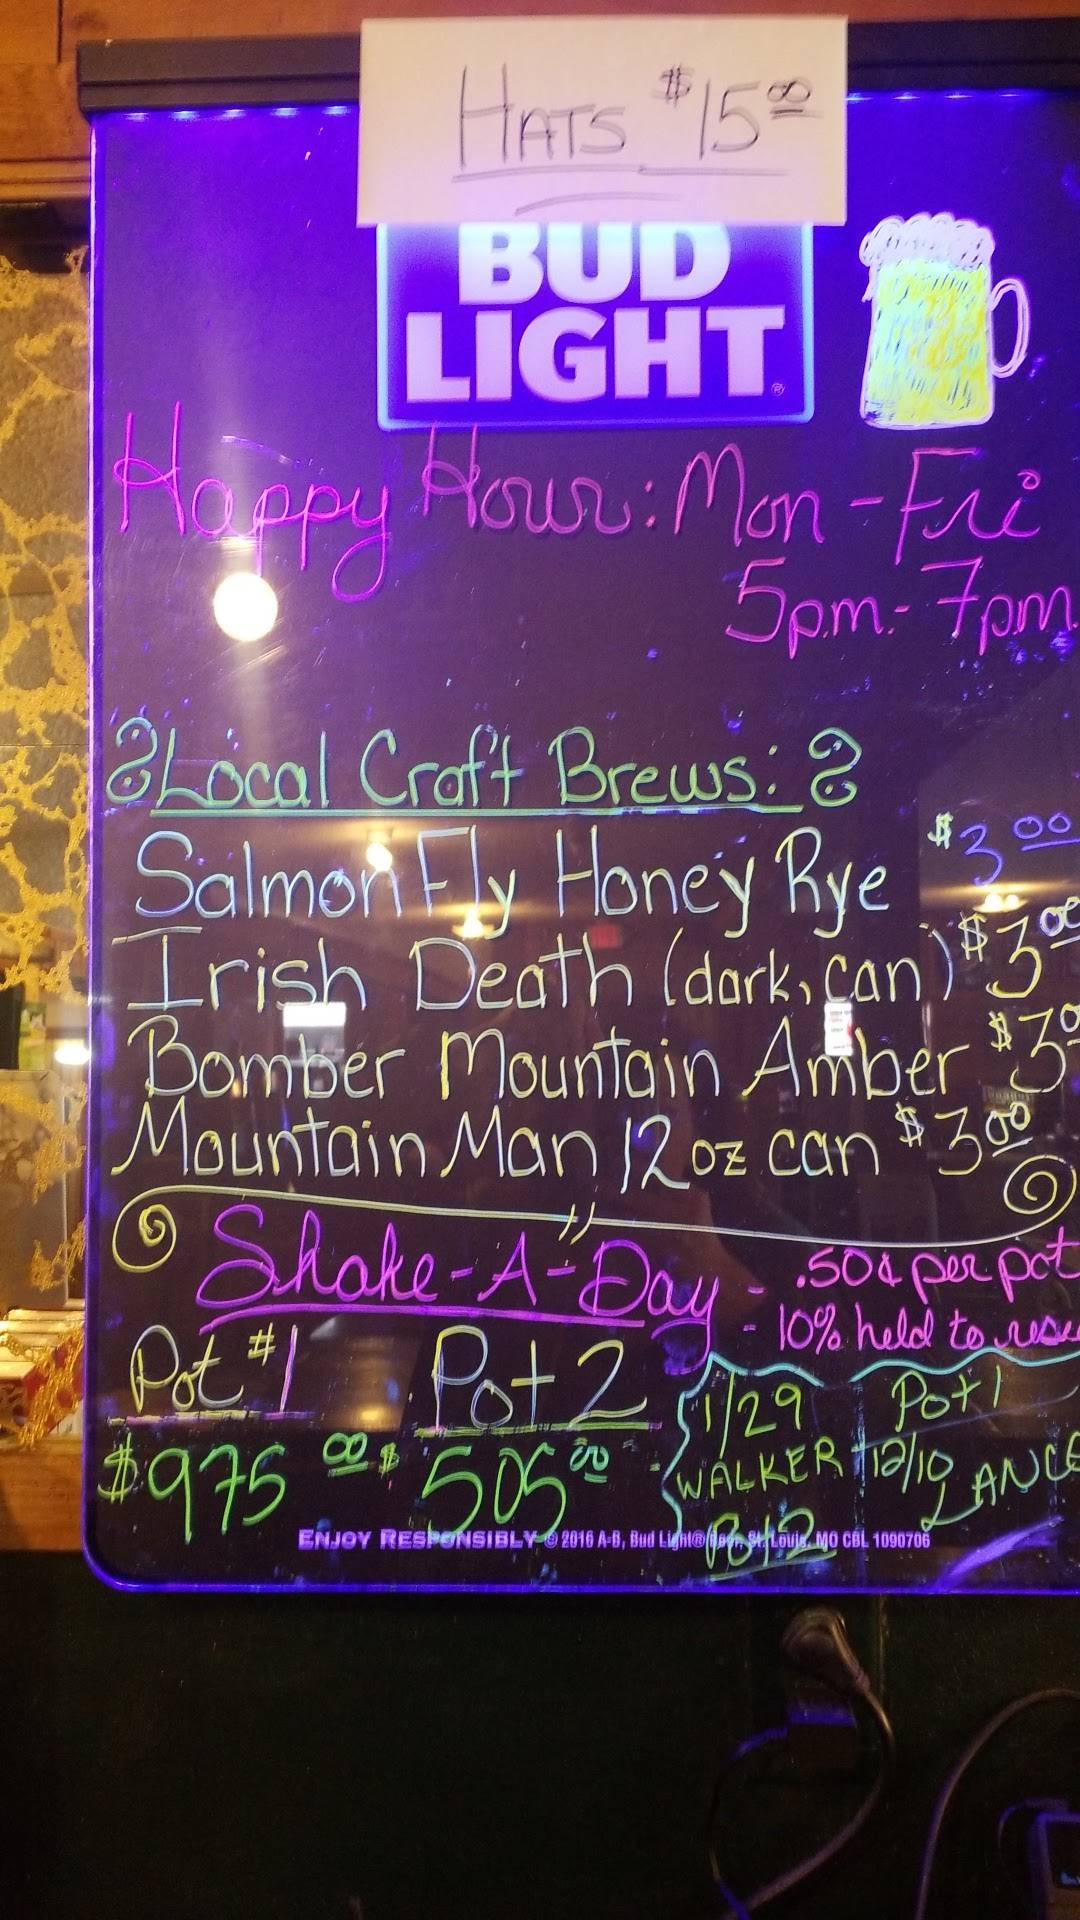 HATS $15.00
BUD
LIGHT®
Happy Hour: Mon - Fri
5p.m. - 7pm.
Local Craft Brews:
Salmon Fly Honey Rye $3.00
Irish Death (dark, can) $3.00
Bomber Mountain Amber $3.0
Mountain Man 12 oz can $3.00
Shake-A-Day - .50¢ per pot
- 10% held to
Pot #1 Pot 2
$975.00 $505.00
1/29
WALKER
Pot 2
Pot 1
12/10
LANCE
ENJOY RESPONSIBLY © 2016 A-B, Bud Light® Beer, St. Louis, MO CBL 1090706